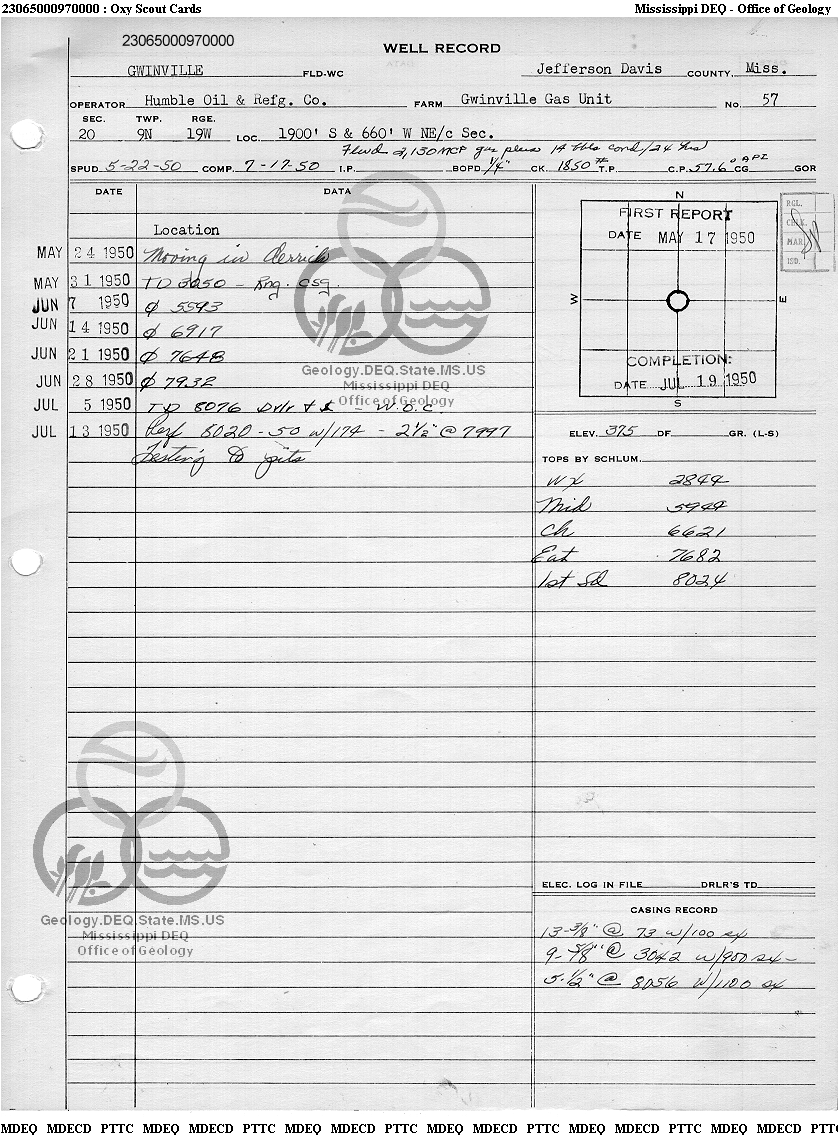 23065000970000 : Oxy Scout Cards Mississippi DEQ - Office of Geology
23065000970000
WELL RECORD
GWINVILLE FLD-WC Jefferson Davis COUNTY, Miss.
OPERATOR Humble Oil & Refg. Co. FARM Gwinville Gas Unit No. 57
SEC. TWP. RGE.
20 9N 19W LOC. 1900' S & 660' W NE/c Sec.
Flwd 2,130 MCP gas plus 14 bbls cond/24 hrs
SPUD 5-22-50 COMP. 7-17-50 I.P. BOPD 1/4" CK. 1850# T.P. C.P. 57.6° API CG GOR
DATE DATA
Location
MAY 24 1950 Moving in derrick
MAY 31 1950 TD 3050 - Rng. csg.
JUN 7 1950 Ø 5593
JUN 14 1950 Ø 6917
JUN 21 1950 Ø 7648
JUN 28 1950 Ø 7932
JUL 5 1950 TD 8076 Drlr + S - W.O.C.
JUL 13 1950 Perf 8020-50 w/174 - 2 1/2" @ 7997
Testing to pits
N
FIRST REPORT
DATE MAY 17 1950
W E
COMPLETION:
DATE JUL 19 1950
S
RGL.
MAR.
ISD.
ELEV. 375 DF. GR. (L-S)
TOPS BY SCHLUM.
Wx 2844
Mid 5944
Ch 6621
Eat 7682
1st Sd 8024
ELEC. LOG IN FILE DRLR'S TD
CASING RECORD
13-3/8" @ 73 w/100 sx
9-5/8" @ 3042 w/900 sx -
5-1/2" @ 8056 w/1100 sx
Geology.DEQ.State.MS.US
Mississippi DEQ
Office of Geology
Geology.DEQ.State.MS.US
Mississippi DEQ
Office of Geology
MDEQ MDECD PTTC MDEQ MDECD PTTC MDEQ MDECD PTTC MDEQ MDECD PTTC MDEQ MDECD PTTC MDEQ MDECD PTTC